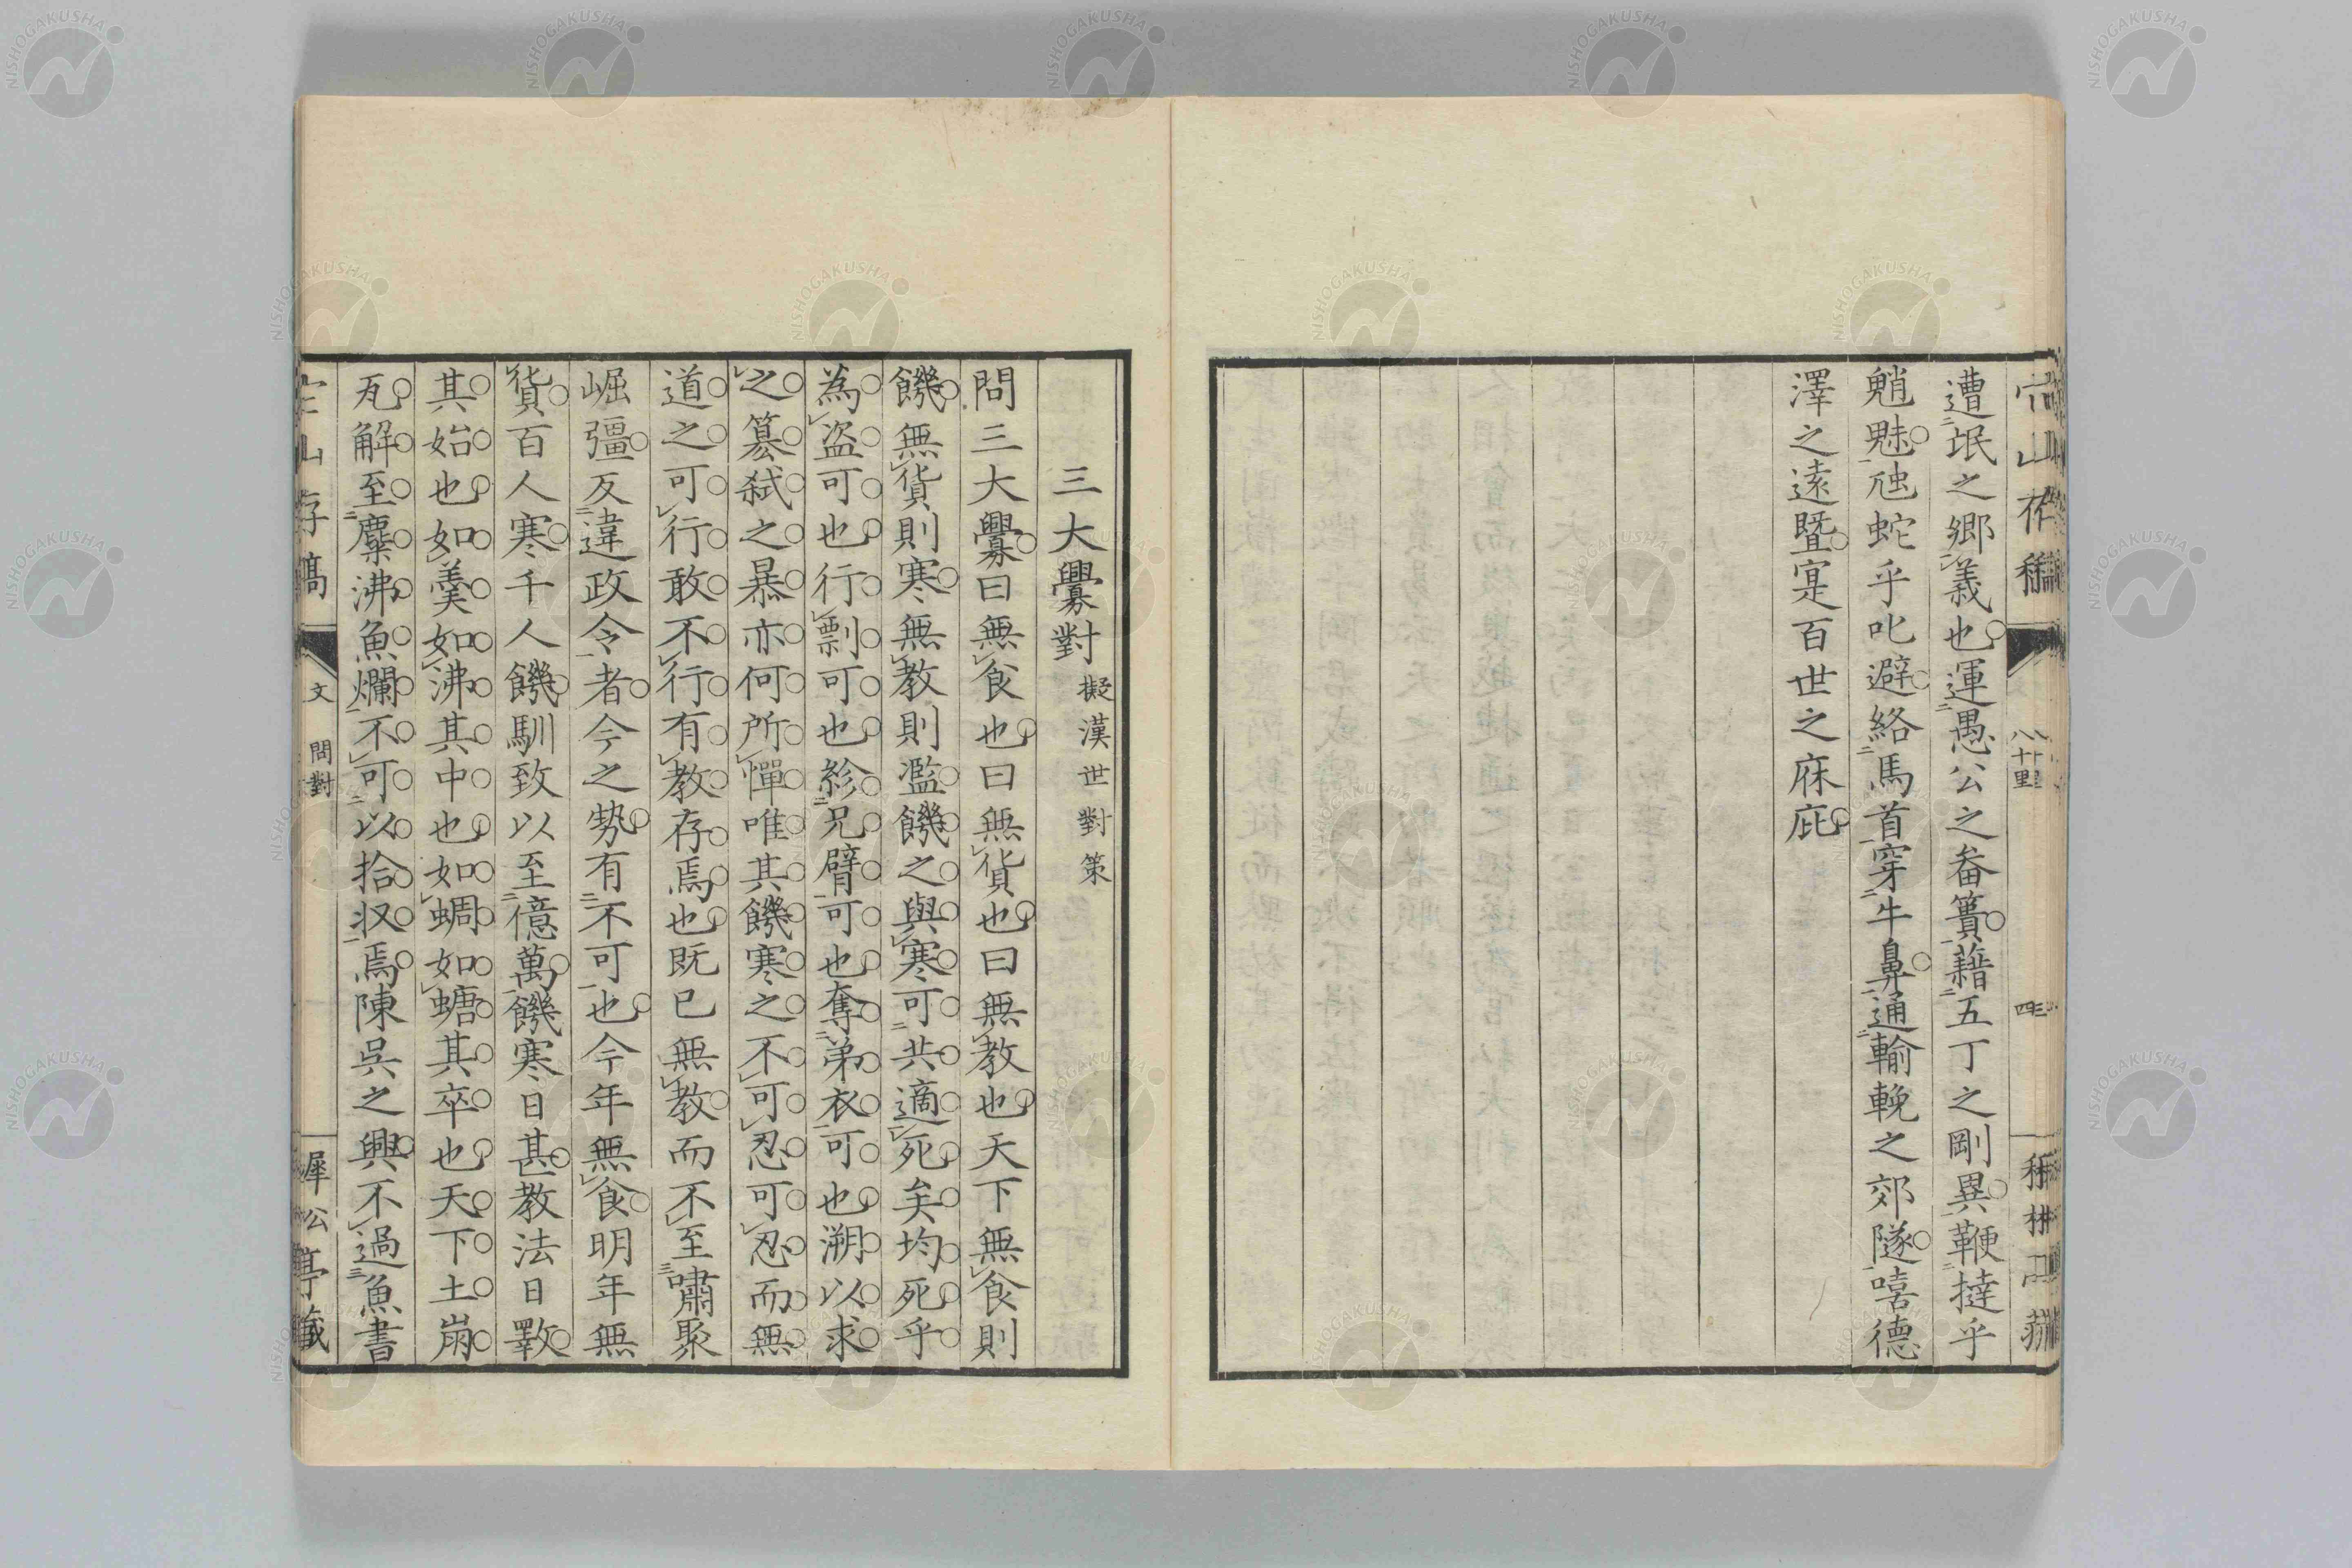 遭氓之鄉義也運愚公之畚簣藉五丁之剛異鞭撻乎
魈魅虺蛇乎叱避絡馬首穿牛鼻通輸輓之郊隧嘻德
澤之遠曁寔百世之庥庇
三大釁對 擬漢世對策
問三大釁曰無食也曰無貨也曰無教也天下無食則
饑無貨則寒無教則濫饑之與寒可共適死矣均死乎
為盗可也行剽可也紾兄臂可也奪弟衣可也溯以求
之簒弑之暴亦何所憚唯其饑寒之不可忍可忍而無
道之可行敢不行有教存焉也既已無教而不至嘯聚
崛彊反違政令者今之勢有不可也今年無食明年無
貨百人寒千人饑馴致以至億萬饑寒日甚教法日斁
其始也如羹如沸其中也如蜩如螗其卒也天下土崩
瓦解至麋沸魚爛不可以拾収焉陳吳之興不過魚書
文 問對
犀公亭藏
NISHOGAKUSHA